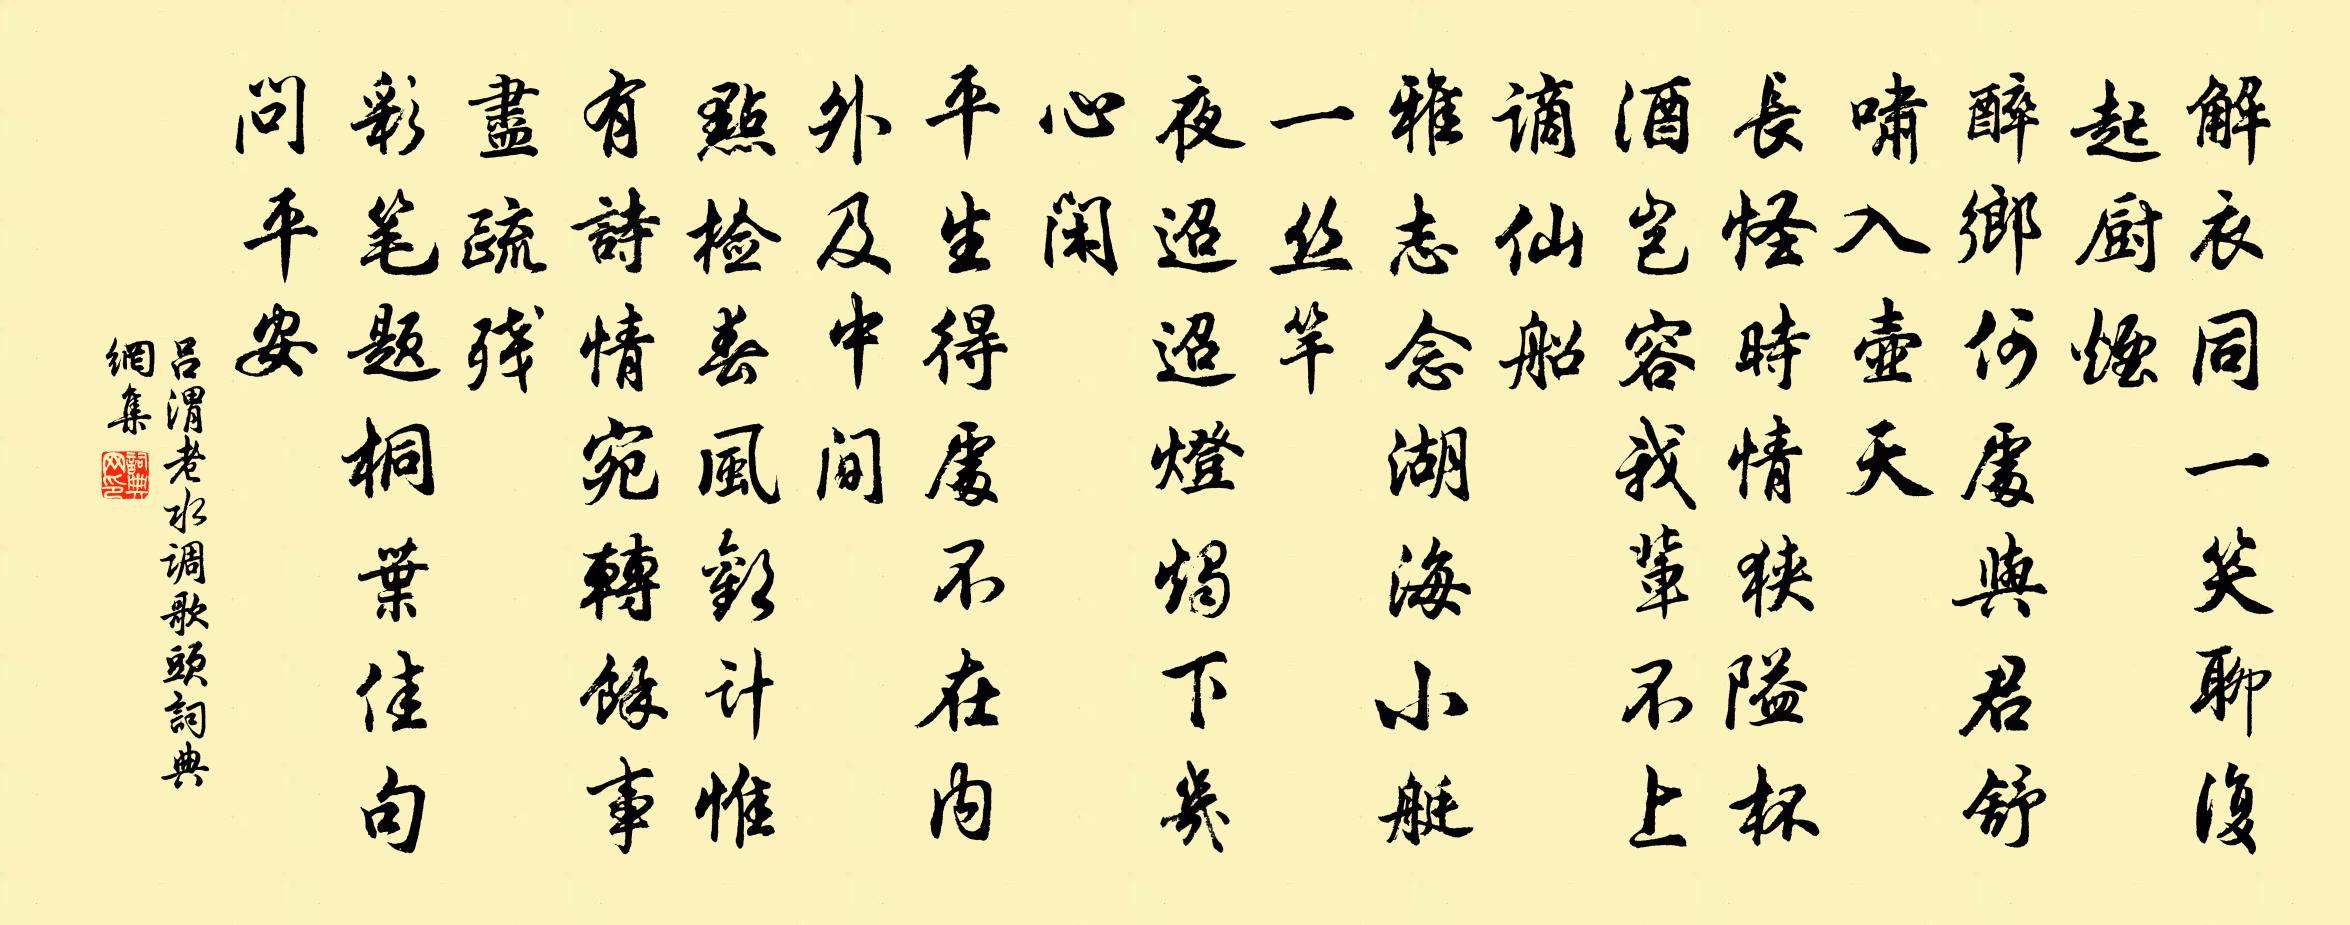 解衣同一笑聊復
起厨煙
醉鄉何處與君舒
嘯入壺天
長怪時情狹隘杯
酒豈容我輩不上
謫仙船
雅志念湖海小艇
一丝竿
夜迢迢燈燭下幾
心闲
平生得處不在内
外及中间
點检春風歡计惟
有詩情宛轉餘事
盡疏残
彩笔题桐葉佳句
问平安
吕渭老水调歌頭詞典
網集
詞典网印